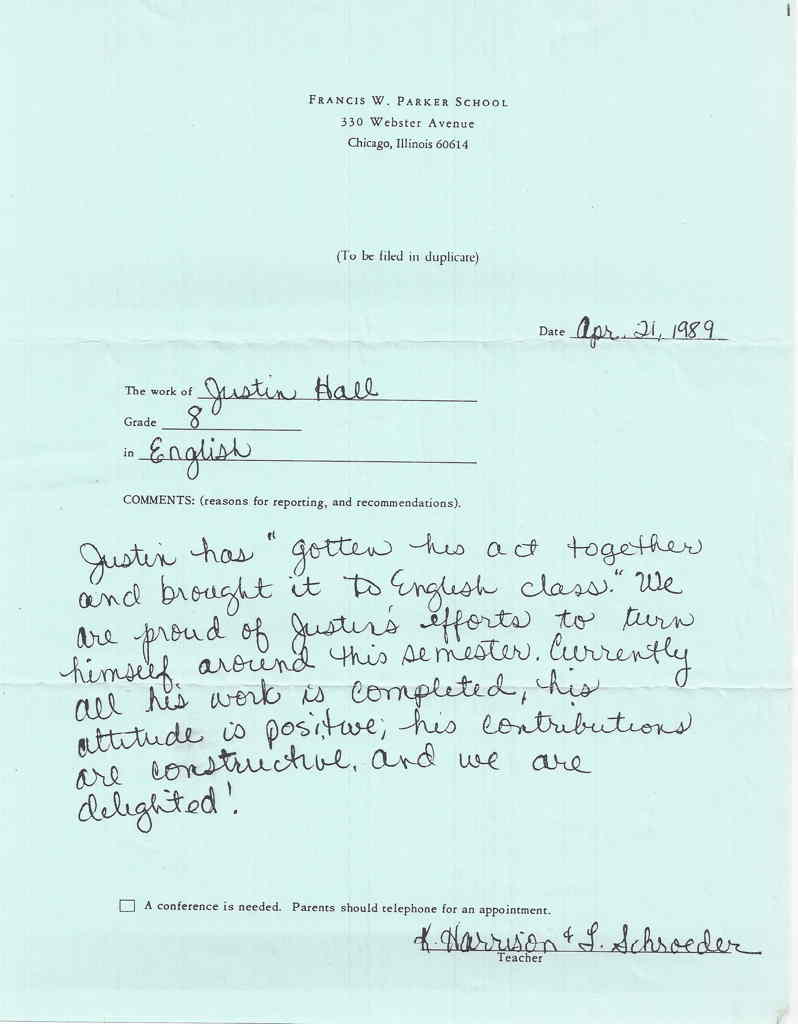 FRANCIS W. PARKER SCHOOL
330 Webster Avenue
Chicago, Illinois 60614
(To be filed in duplicate)
Date Apr. 21, 1989
The work of Justin Hall
Grade 8
in English
COMMENTS: (reasons for reporting, and recommendations).
Justin has "gotten his act together
and brought it to English class." We
are proud of Justin's efforts to turn
himself around this semester. Currently
all his work is completed, his
attitude is positive; his contributions
are constructive. And we are
delighted!
A conference is needed. Parents should telephone for an appointment.
K. Harrison & L. Schroeder
Teacher